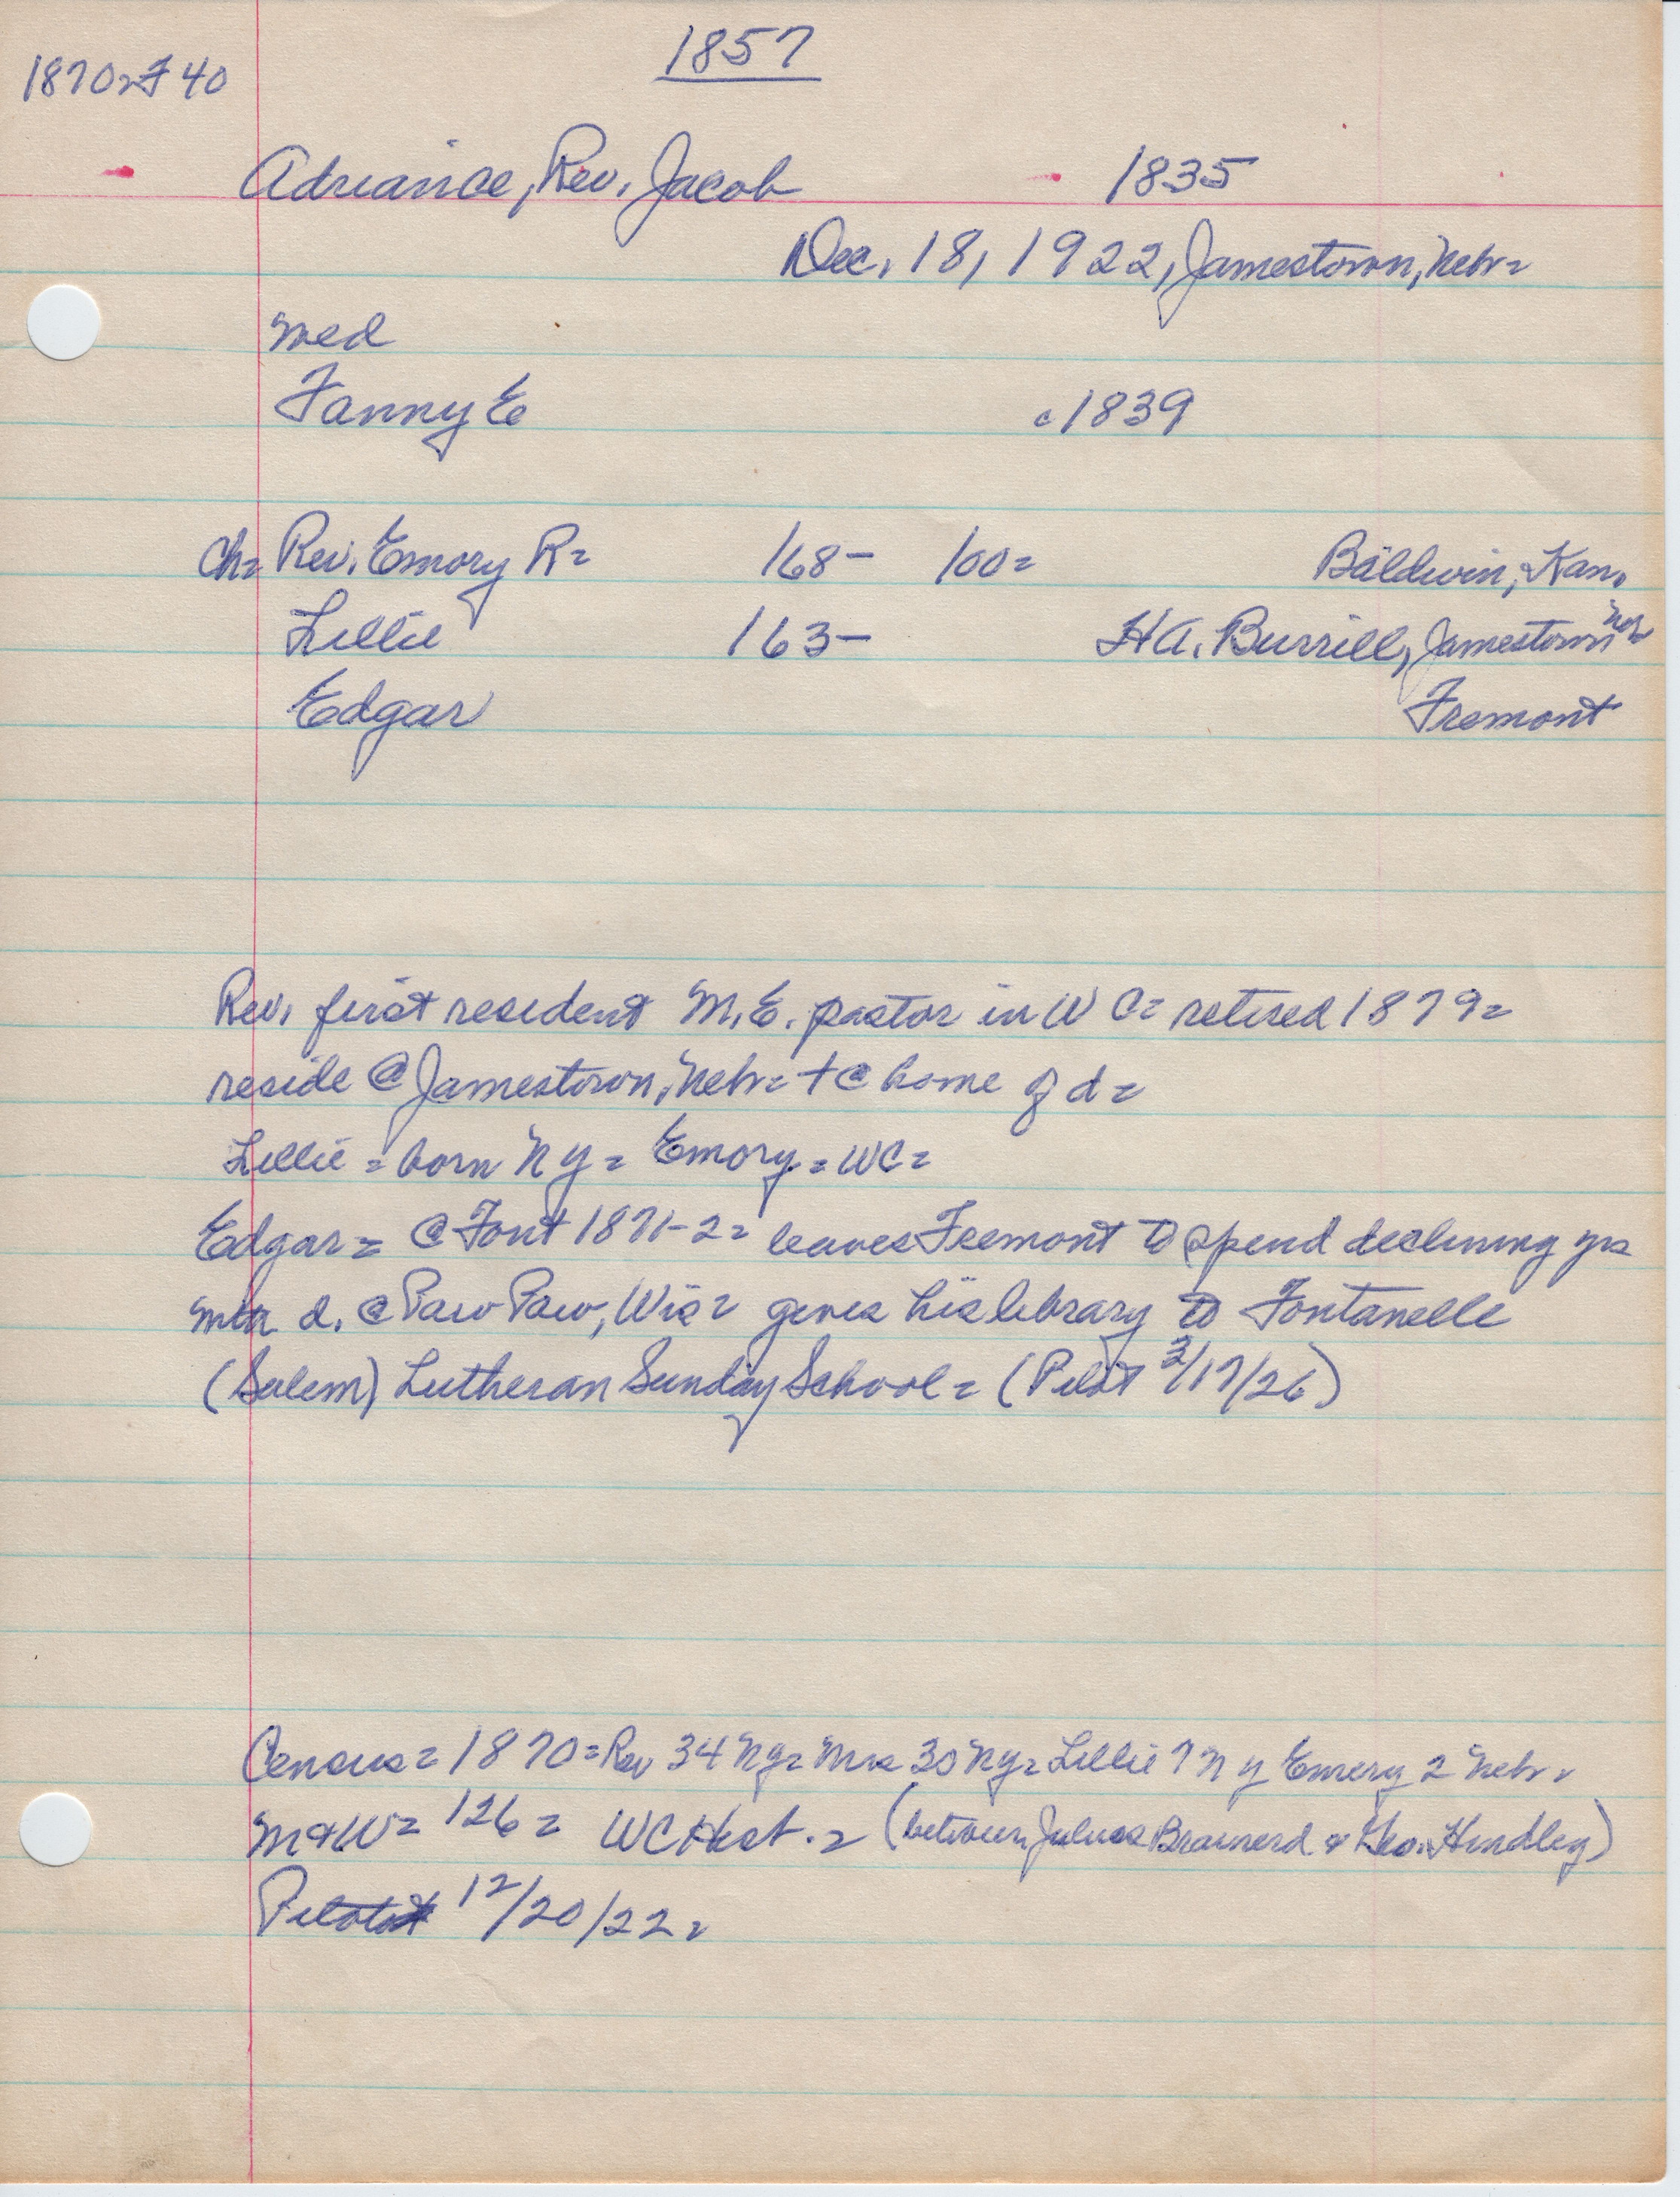 1857
1870=F 40
Adriance, Rev. Jacob 1835
Dec. 18, 1922, Jamestown, Nebr=
med
Fanny E c1839
Ch= Rev. Emory R= 168- 100= Baldwin, Kan.
Lillie 163- H.A. Burrill, Jamestown
Edgar Fremont
Rev. first resident M.E. pastor in W C= retired 1879=
reside @ Jamestown, Nebr= + @ home of d=
Lillie = born N Y = Emory = WC=
Edgar = @ Font 1871-2= leaves Fremont to spend declining yrs
d. @ Paw Paw, Wis= gives his library to Fontanelle
(Salem) Lutheran Sunday School = (Pilot 3/17/26)
Census = 1870 = Rev 34 NY= Mrs 30 NY= Lillie 7 N Y Emery 2 Nebr=
M&W= 126= WC Hist. = (between Julius Brainerd & Geo. Hindley)
Pilot 12/20/22=